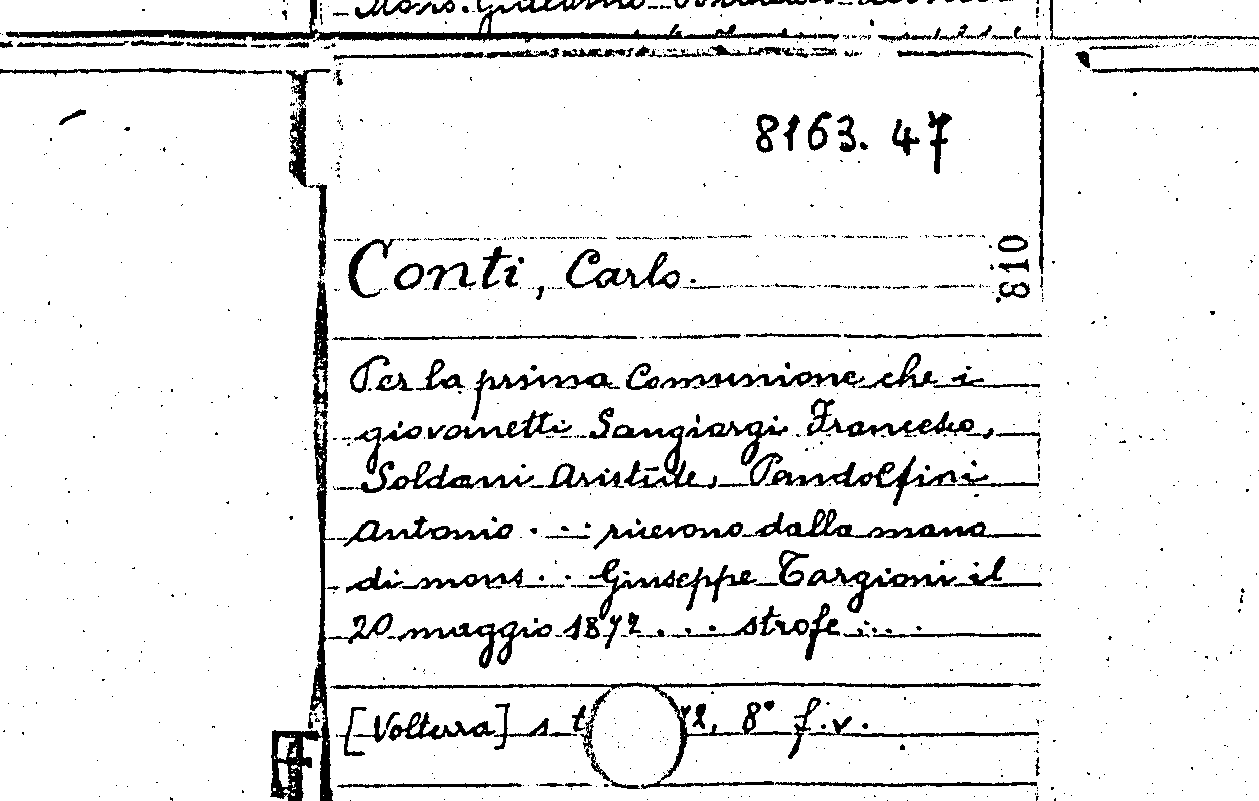 Mons. Giuliano
8163. 47
810
Conti, Carlo.
Per la prima Comunione che i
giovanetti Sangiorgi Francesco,
Soldani Aristide, Pandolfini
Antonio ... ricevono dalla mano
di mons. .. Giuseppe Targioni il
20 maggio 1872 ... strofe ....
[Volterra] s t 72, 8° f.v.